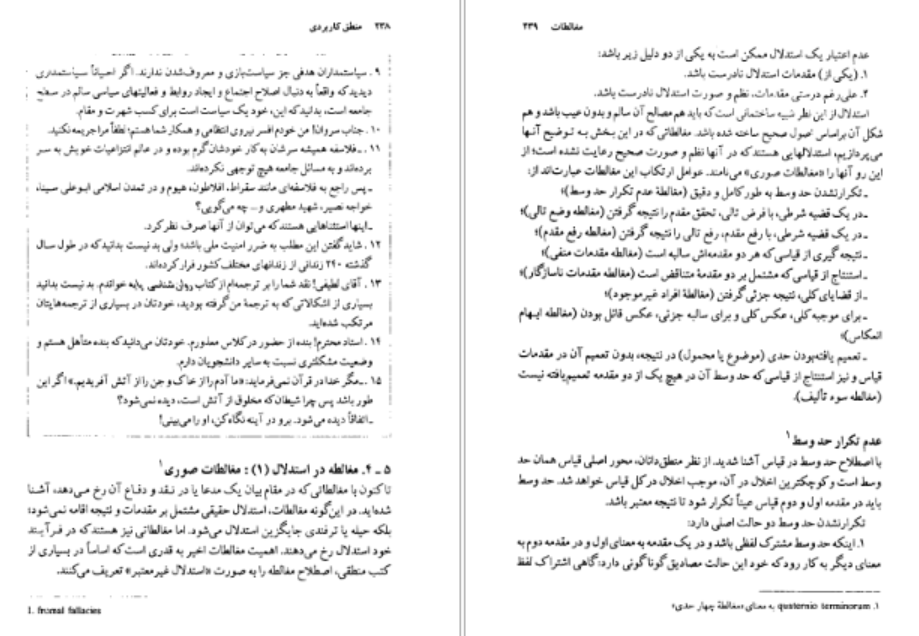 ۲۳۸ منطق کاربردی
۹ . سیاستمداران هدفی جز سیاست‌بازی و معروف‌شدن ندارند. اگر احیاناً سیاستمداری
دیدید که واقعاً به دنبال اصلاح اجتماع و ایجاد روابط و فعالیتهای سیاسی سالم در سطح
جامعه است، بدانید که این، خود یک سیاست است برای کسب شهرت و مقام.
۱۰ . جناب سروان! من خودم افسر نیروی انتظامی و همکار شما هستم؛ لطفاً مرا جریمه نکنید.
۱۱ . ـ فلاسفه همیشه سرشان به کار خودشان گرم بوده و در عالم انتزاعیات خویش به سر
برده‌اند و به مسائل جامعه هیچ توجهی نکرده‌اند.
ـ پس راجع به فلاسفه‌ای مانند سقراط، افلاطون، هیوم و در تمدن اسلامی ابوعلی سینا،
خواجه نصیر، شهید مطهری و... چه می‌گویی؟
ـ اینها استثناهایی هستند که می‌توان از آنها صرف نظر کرد.
۱۲ . شاید گفتن این مطلب به ضرر امنیت ملی باشد؛ ولی بد نیست بدانید که در طول سال
گذشته ۲۴۰ زندانی از زندانهای مختلف کشور فرار کرده‌اند.
۱۳ . آقای لطیفی! نقد شما را بر ترجمه‌ام از کتاب روان‌شناسی پایه خواندم. بد نیست بدانید
بسیاری از اشکالاتی که به ترجمهٔ من گرفته بودید، خودتان در بسیاری از ترجمه‌هایتان
مرتکب شده‌اید.
۱۴ . استاد محترم! بنده از حضور در کلاس معذورم. خودتان می‌دانید که بنده متأهل هستم و
وضعیت مشکلتری نسبت به سایر دانشجویان دارم.
۱۵ . ـ مگر خدا در قرآن نمی‌فرماید: «ما آدم را از خاک و جن را از آتش آفریدیم.» اگر این
طور باشد پس چرا شیطان که مخلوق از آتش است، دیده نمی‌شود؟
ـ اتفاقاً دیده می‌شود. برو در آینه نگاه کن، او را می‌بینی!
۵ ـ ۴. مغالطه در استدلال (۱) : مغالطات صوری۱
تا کنون با مغالطاتی که در مقام بیان یک مدعا یا در نقد و دفاع آن رخ می‌دهد، آشنا
شده‌اید. در این‌گونه مغالطات، استدلال حقیقی مشتمل بر مقدمات و نتیجه اقامه نمی‌شود؛
بلکه حیله یا ترفندی جایگزین استدلال می‌شود. اما مغالطاتی نیز هستند که در فرآیند
خود استدلال رخ می‌دهند. اهمیت مغالطات اخیر به قدری است که اساساً در بسیاری از
کتب منطقی، اصطلاح مغالطه را به صورت «استدلال غیرمعتبر» تعریف می‌کنند.
1. fromal fallacies
مغالطات ۲۳۹
عدم اعتبار یک استدلال ممکن است به یکی از دو دلیل زیر باشد:
۱. (یکی از) مقدمات استدلال نادرست باشد.
۲. علی‌رغم درستی مقدمات، نظم و صورت استدلال نادرست باشد.
استدلال از این نظر شبیه ساختمانی است که باید هم مصالح آن سالم و بدون عیب باشد و هم
شکل آن براساس اصول صحیح ساخته شده باشد. مغالطاتی که در این بخش به توضیح آنها
می‌پردازیم، استدلالهایی هستند که در آنها نظم و صورت صحیح رعایت نشده است؛ از
این رو آنها را «مغالطات صوری» می‌نامند. عوامل ارتکاب این مغالطات عبارت‌اند از:
ـ تکرارنشدن حد وسط به طور کامل و دقیق (مغالطهٔ عدم تکرار حد وسط)؛
ـ در یک قضیه شرطی، با فرض تالی، تحقق مقدم را نتیجه گرفتن (مغالطه وضع تالی)؛
ـ در یک قضیه شرطی، با رفع مقدم، رفع تالی را نتیجه گرفتن (مغالطه رفع مقدم)؛
ـ نتیجه گیری از قیاسی که هر دو مقدمه‌اش سالبه است (مغالطه مقدمات منفی)؛
ـ استنتاج از قیاسی که مشتمل بر دو مقدمهٔ متناقض است (مغالطه مقدمات ناسازگار)؛
ـ از قضایای کلی، نتیجه جزئی گرفتن (مغالطهٔ افراد غیرموجود)؛
ـ برای موجبه کلی، عکس کلی و برای سالبه جزئی، عکس قائل بودن (مغالطه ایهام
انعکاس)؛
ـ تعمیم یافته‌بودن حدی (موضوع یا محمول) در نتیجه، بدون تعمیم آن در مقدمات
قیاس و نیز استنتاج از قیاسی که حد وسط آن در هیچ یک از دو مقدمه تعمیم‌یافته نیست
(مغالطه سوء تألیف).
عدم تکرار حد وسط۱
با اصطلاح حد وسط در قیاس آشنا شدید. از نظر منطق‌دانان، محور اصلی قیاس همان حد
وسط است و کوچکترین اخلال در آن، موجب اخلال در کل قیاس خواهد شد. حد وسط
باید در مقدمه اول و دوم قیاس عیناً تکرار شود تا نتیجه معتبر باشد.
تکرارنشدن حد وسط دو حالت اصلی دارد:
۱. اینکه حد وسط مشترک لفظی باشد و در یک مقدمه به معنای اول و در مقدمه دوم به
معنای دیگر به کار رود که خود این حالت مصادیق گوناگونی دارد: گاهی اشتراک لفظ
۱. quaternio terminorum به معنای «مغالطهٔ چهار حدی»